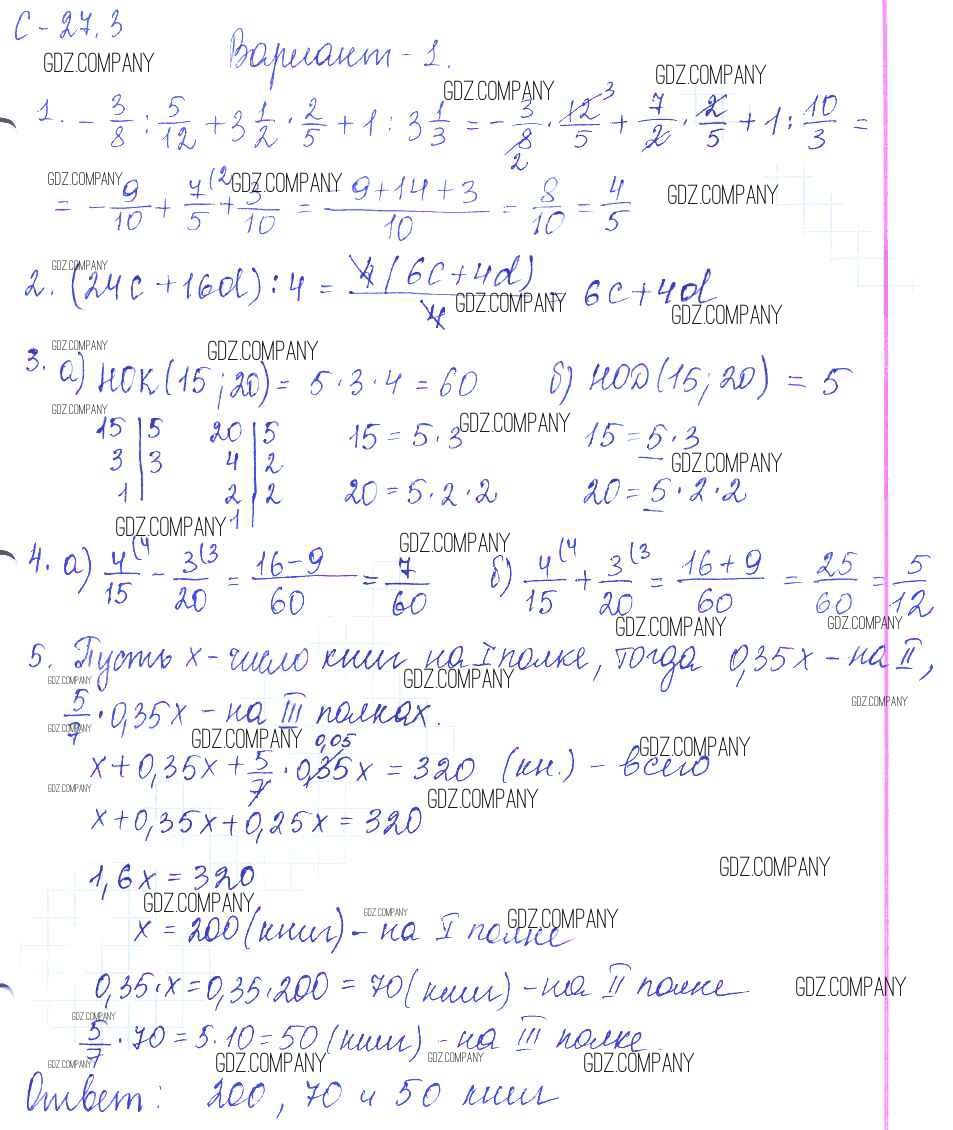 С-27.3
GDZ.COMPANY
Вариант-1.
GDZ.COMPANY
GDZ.COMPANY
1. - 3/8 : 5/12 + 3 1/2 · 2/5 + 1 : 3 1/3 = - 3/8 2 · 12 3/5 + 7/2 · 2/5 + 1 : 10/3 =
GDZ.COMPANY GDZ.COMPANY GDZ.COMPANY
= - 9/10 + 7(2/5 + 3/10 = 9+14+3/10 = 8/10 = 4/5
GDZ.COMPANY
2. (24c + 16d) : 4 = 4(6c+4d)/4 = 6c+4d
GDZ.COMPANY GDZ.COMPANY
GDZ.COMPANY GDZ.COMPANY
3. а) НОК(15; 20) = 5·3·4 = 60 б) НОД(15; 20) = 5
GDZ.COMPANY GDZ.COMPANY
15 | 5 20 | 5 15 = 5·3 15 = 5·3
3 | 3 4 | 2
GDZ.COMPANY
1 | 2 | 2 20 = 5·2·2 20 = 5·2·2
1
GDZ.COMPANY GDZ.COMPANY
4. а) 4(4/15 - 3(3/20 = 16-9/60 = 7/60 б) 4(4/15 + 3(3/20 = 16+9/60 = 25/60 = 5/12
GDZ.COMPANY GDZ.COMPANY
5. Пусть x - число книг на I полке, тогда 0,35x - на II,
GDZ.COMPANY GDZ.COMPANY GDZ.COMPANY
5/7 · 0,35x - на III полках.
GDZ.COMPANY GDZ.COMPANY GDZ.COMPANY
x + 0,35x + 5/7 · 0,35 0,05 x = 320 (кн.) - всего
GDZ.COMPANY GDZ.COMPANY
x + 0,35x + 0,25x = 320
GDZ.COMPANY
1,6x = 320
GDZ.COMPANY GDZ.COMPANY GDZ.COMPANY
x = 200 (книг) - на I полке
0,35·x = 0,35·200 = 70 (книг) - на II полке
GDZ.COMPANY
GDZ.COMPANY
5/7 · 70 = 5·10 = 50 (книг) - на III полке
GDZ.COMPANY GDZ.COMPANY GDZ.COMPANY GDZ.COMPANY
Ответ: 200, 70 и 50 книг